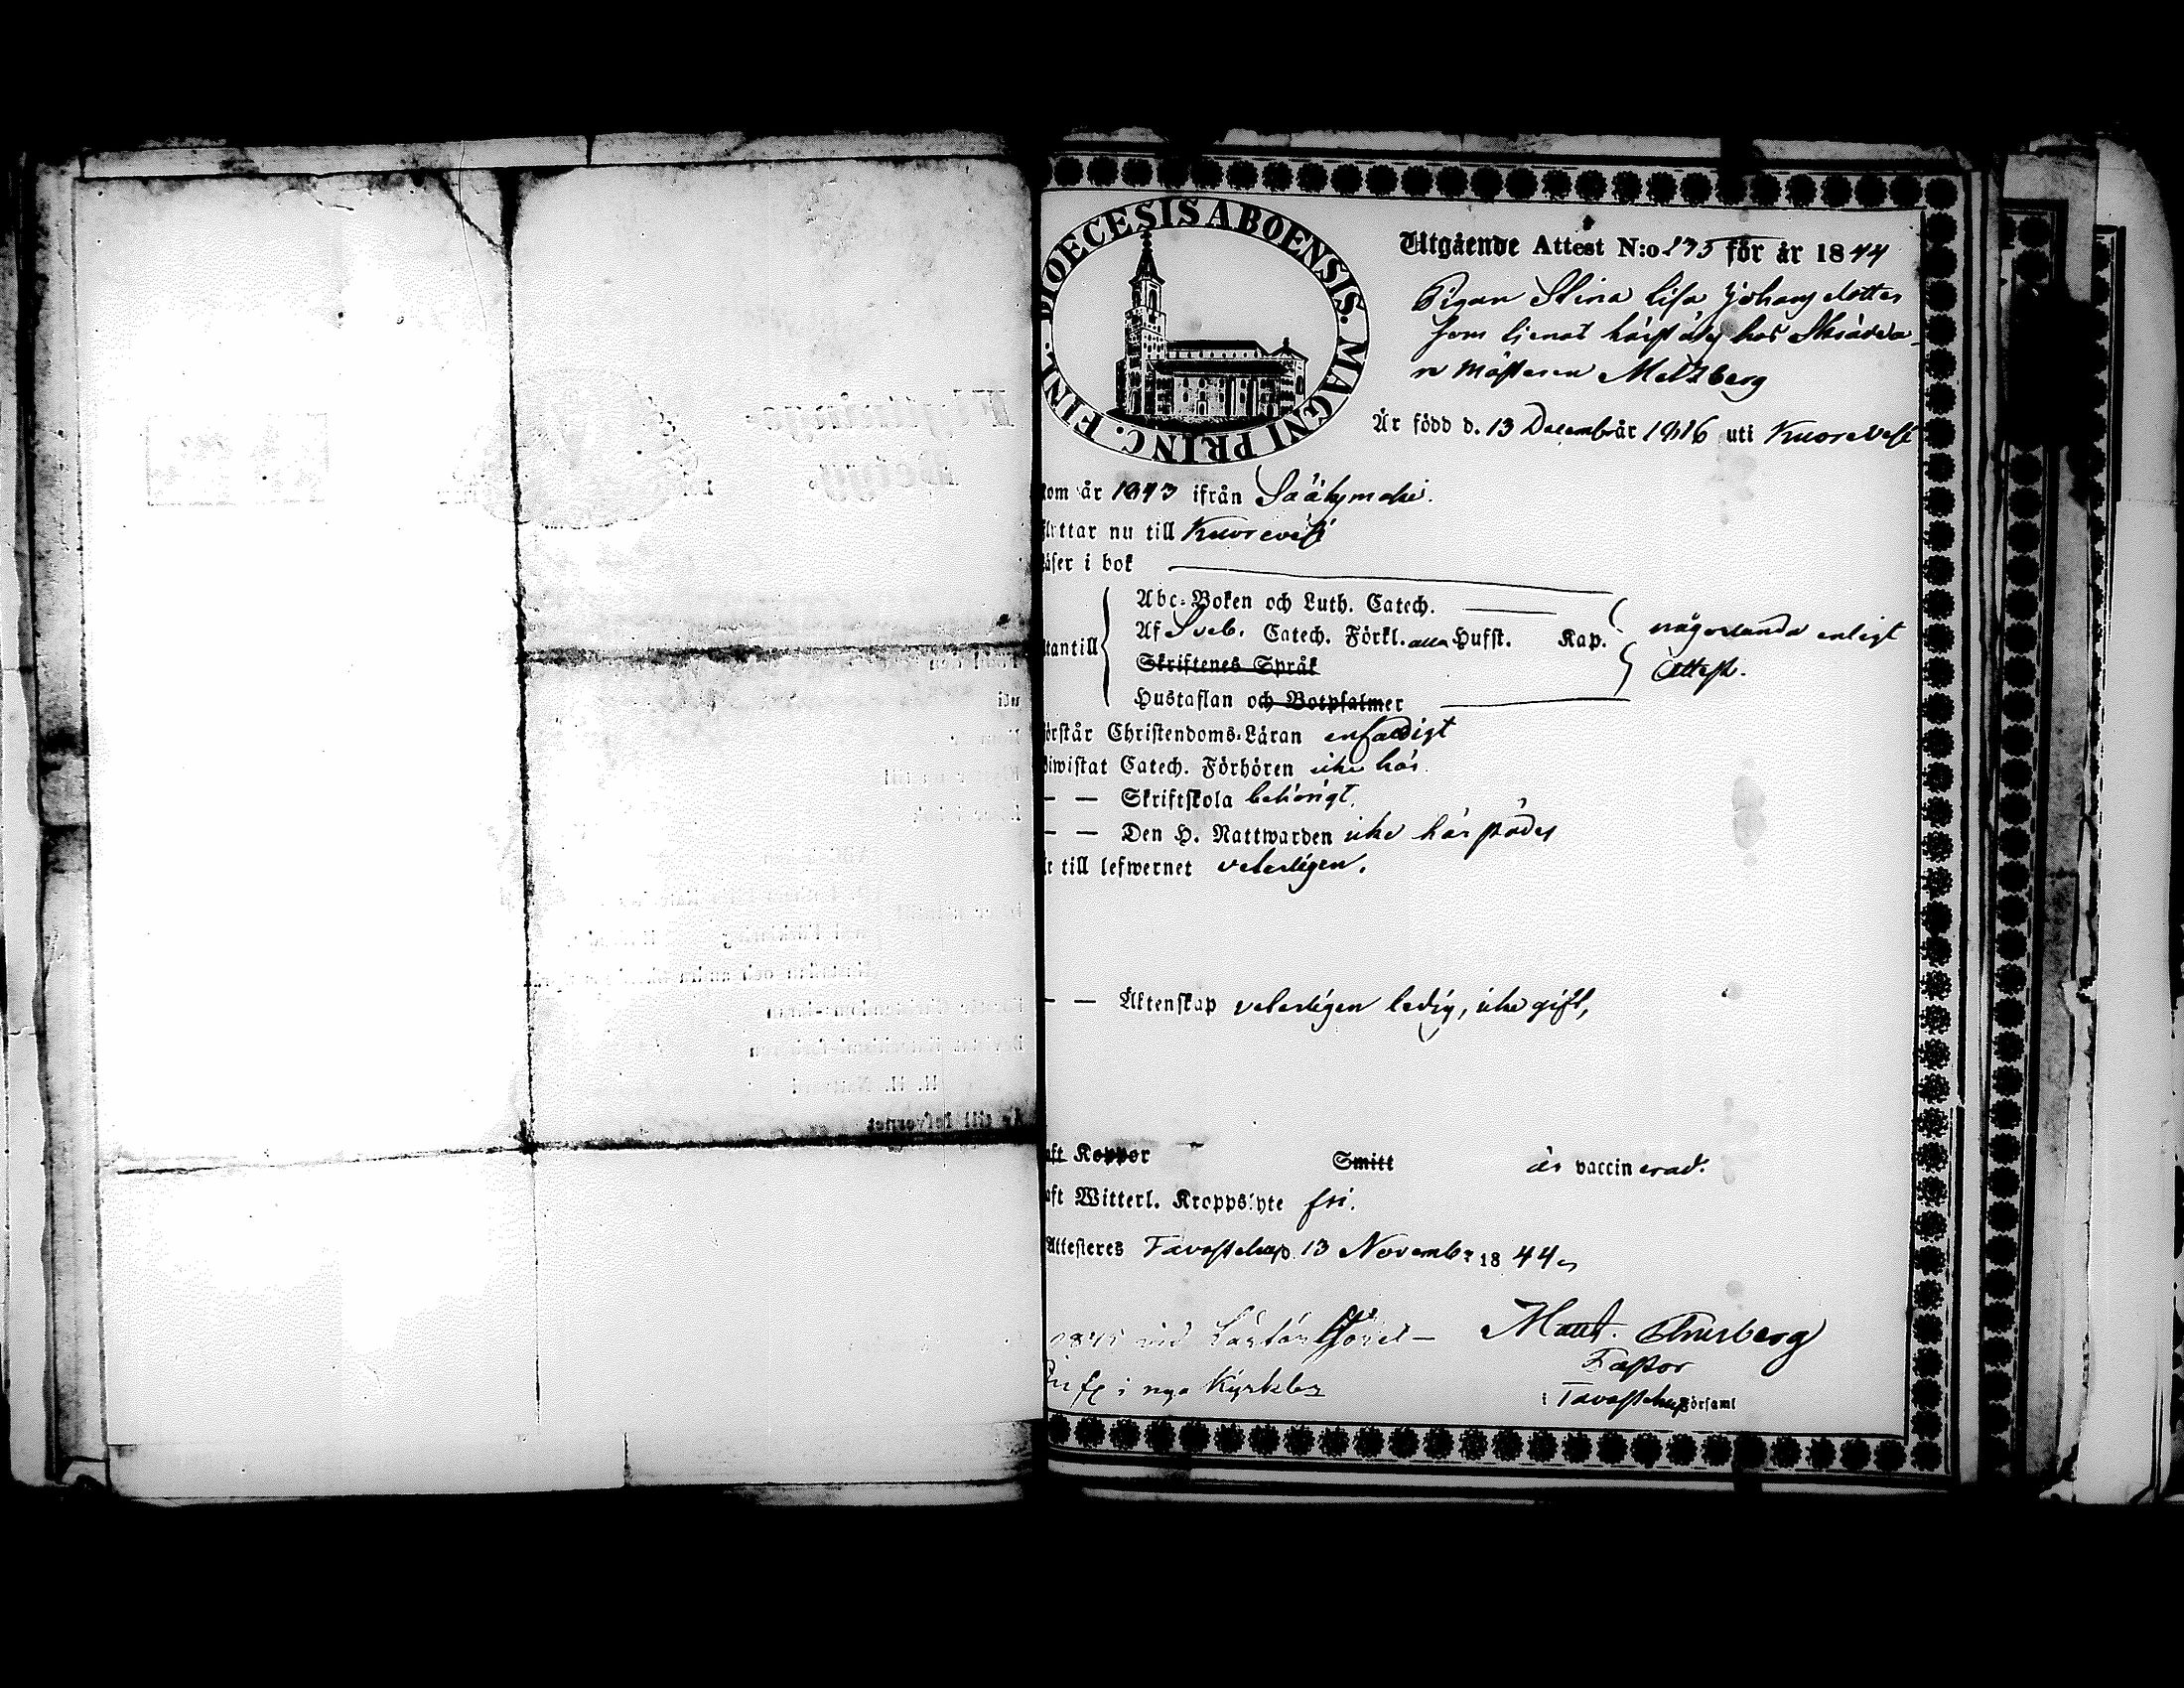 FINL. DIOECESIS ABOENSIS. MAGNI PRINC.
Utgående Attest N:o 173 för år 1844
Pigan Stina Lisa Johans dotter
som tjenat härstädes hos Skrädda-
re Mästaren Meltzberg
Är född d. 13 Decemb år 1816 uti Kuorevesi
kom år 1843 ifrån Sääksmäki.
flyttar nu till Kuorevesi
läser i bok
utantill
Abc-Boken och Luth. Catech.
Af Sveb. Catech. Förkl. alla Hufst. Kap. någorlunda enligt
Skriftenes Språk Attest.
Hustaflan och Botpsalmer
förstår Christendoms-Läran enfaldigt
biwistat Catech. Förhören icke här.
— — Skriftskola behörigt.
— — Den H. Nattwarden icke här städes
Är till lefwernet veterligen.
— — Äktenskap veterligen ledig, icke gift,
haft Koppor Smitt är vaccinerad.
haft Witterl. Kroppslyte fri.
Attesteres Tavastehus 13 Novemb: 1844
1845 vid
Matt. Pastor
i nya Kyrkb
i Tavastehus Församl